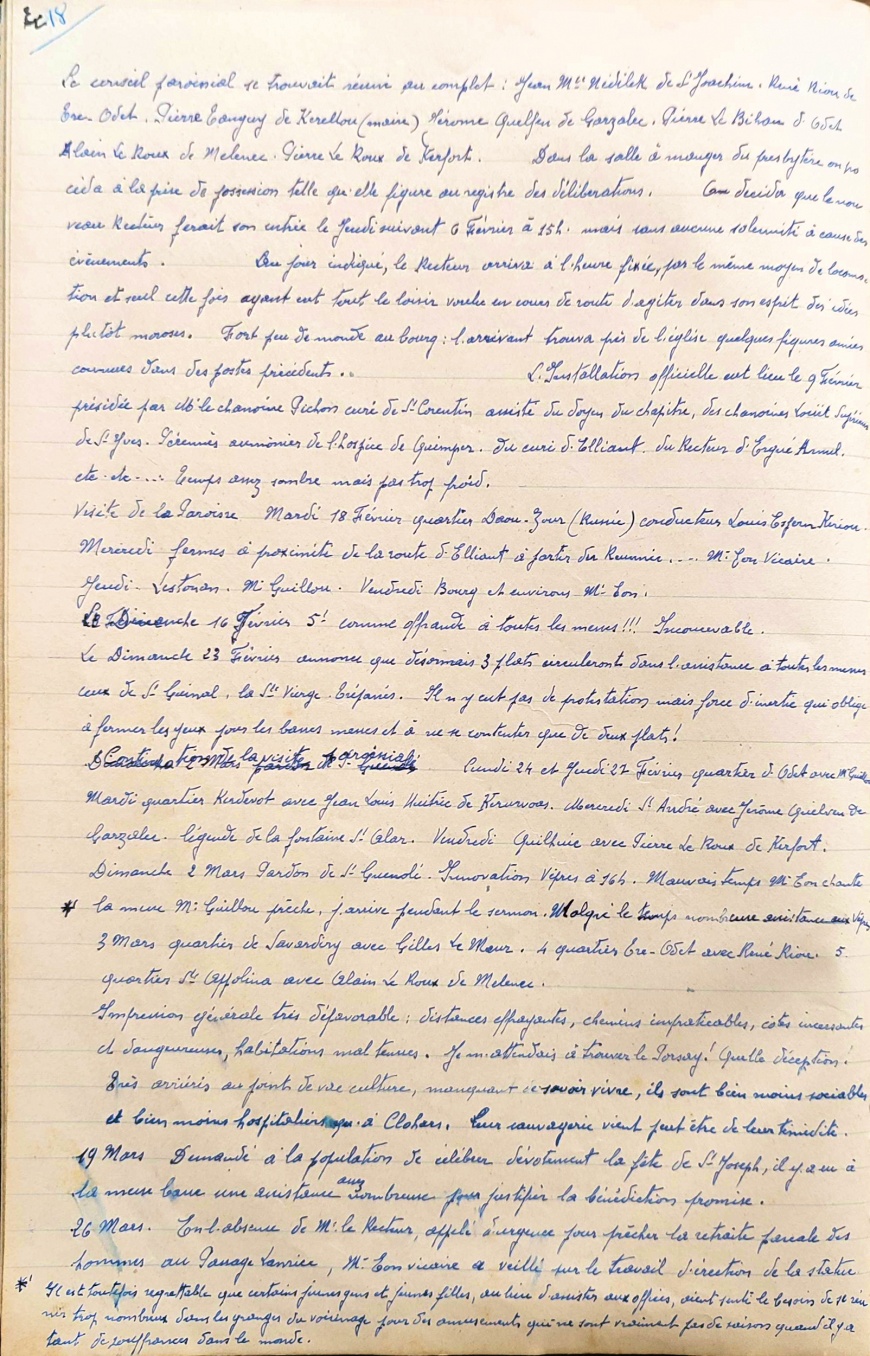 18
Le conseil paroissial se trouvait réuni au complet : Jean M. Nédélek de St Joachim. René Riou de
Ere-Odet. Pierre Tanguy de Kerellou (maire) Jérome Quelfen de Garzalec. Pierre Le Bihan d'Odet
Alain Le Roux de Melenec. Pierre Le Roux de Kerfort. Dans la salle à manger du presbytère on pro
céda à la prise de possession telle qu'elle figure au registre des délibérations. On décida que le nou
veau Recteur ferait son entrée le Jeudi suivant 6 Février à 15h. mais sans aucune solennité à cause des
évènements. Au jour indiqué, le Recteur arriva à l'heure fixée, par le même moyen de locomo-
tion et seul cette fois ayant eut tout le loisir voulu en cours de route d'agiter dans son esprit des idées
plutôt moroses. Fort peu de monde au bourg : l'arrivant trouva près de l'église quelques figures amies
connues dans des postes précédents. L'Installation officielle eut lieu le 9 Février
présidée par Mr le chanoine Pichon curé de St Corentin assisté du doyen du chapitre, des chanoines Louët Supérieur
de St Yves. Pérennès aumônier de l'hospice de Quimper. du curé d'Elliant. du Recteur d'Ergué Armel.
etc. etc.... Temps assez sombre mais pas trop froid.
Visite de la Paroisse Mardi 18 Février quartier Daou-Zour (Russie) conducteur Louis Keriou.
Mercredi fermes à proximité de la route d'Elliant à partir du .... Mr Eon Vicaire.
Jeudi Lestonan. Mr Guillou. Vendredi Bourg et environs Mr Eon.
Le Dimanche 16 Février 5f comme offrande à toutes les messes!!! Inconcevable.
Le Dimanche 23 Février annonce que désormais 3 plats circuleront dans l'assistance à toutes les messes
ceux de St Guinal, la Ste Vierge. Trépassés. Il n'y eut pas de protestation mais force d'inertie qui oblige
à fermer les yeux pour les basses messes et à ne se contenter que de deux plats!
Continuation de la visite paroissiale Lundi 24 et Jeudi 27 Février quartier d'Odet avec Mr Guillou
Mardi quartier Kerdevot avec Jean Louis Huitric de Kerurvoas. Mercredi St André avec Jérôme Quelven de
Garzalec. légende de la fontaine St Alar. Vendredi Quilhuic avec Pierre Le Roux de Kerfort.
Dimanche 2 Mars Pardon de St Guenolé. Innovation Vêpres à 16h. Mauvais temps Mr Eon chante
* la messe Mr Guillou prêche, j'arrive pendant le sermon. Malgré le temps nombreuse assistance aux Vêpres
3 Mars quartier de Lavardiry avec Gilles Le Meur. 4 quartier Ere-Odet avec René Riou. 5
quartier St Appolina avec Alain Le Roux de Melenec.
Impression générale très défavorable : distances effrayantes, chemins impraticables, côtes incessantes
et dangereuses, habitations mal tenues. Je m'attendais à trouver le Porzay! Quelle déception!
Très arriérés au point de vue culture, manquant de savoir vivre, ils sont bien moins sociables
et bien moins hospitaliers qu'à Clohars. Leur sauvagerie vient peut être de leur timidité.
19 Mars Demandé à la population de célébrer dévotement la fête de St Joseph, il y a eu à
la messe basse une assistance assez nombreuse pour justifier la bénédiction promise.
26 Mars. En l'absence de Mr le Recteur, appelé d'urgence pour prêcher la retraite pascale des
hommes au Passage Lanriec, Mr Eon vicaire a veillé sur le travail d'érection de la statue
* Il est toutefois regrettable que certains jeunes gens et jeunes filles, au lieu d'assister aux offices, aient senti le besoin de se réu
nir trop nombreux dans les granges du voisinage pour des amusements qui ne sont vraiment pas de saison quand il y a
tant de souffrances dans le monde.